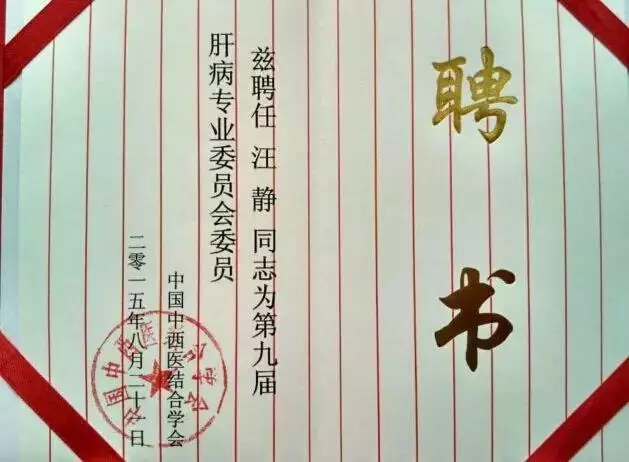 聘书
兹聘任 汪 静 同志为第九届
肝病专业委员会委员
中国中西医结合学会
二零一五年八月二十一日